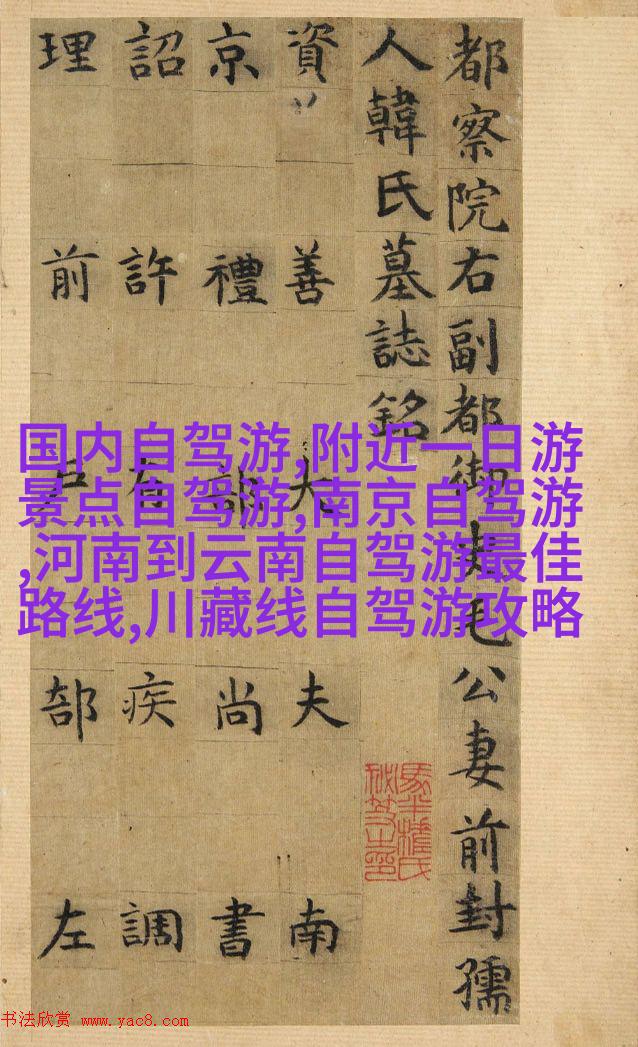 都察院右副都御史毛公妻前封孺
人韓氏墓誌銘
資善大夫南
京禮部尚書
詔許有疾調
理前戶部左
国内自驾游,附近一日游
景点自驾游,南京自驾游
,河南到云南自驾游最佳
路线,川藏线自驾游攻略
书法欣赏 www.yac8.com